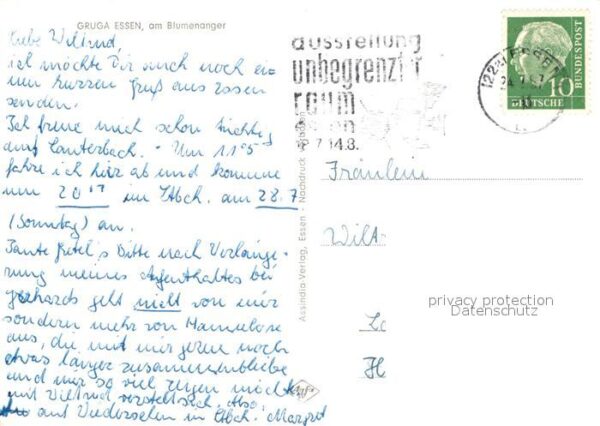 GRUGA ESSEN, am Blumenanger
Liebe Wiltrud,
ich möchte Dir auch noch ei-
nen kurzen Gruß aus Essen
senden.
Ich freue mich schon tüchtig
auf Lauterbach. Um 11⁰⁵
fahre ich hier ab und komme
um 20¹⁷ im Lbch. am 28.7
(Sonntag) an.
Tante Gretel's Bitte nach Verlänge-
rung meines Aufenthaltes bei
Gerhards geht nicht von mir
sondern mehr von
aus, die mit mir gerne noch
etwas länger zusammenbliebe
und mir so viel zeigen möchte
mit Wiltrud verständlich. Also
auf Wiedersehn in Lbch. Margret
Assindia-Verlag, Essen - Nachdruck verboten
ausstellung
unbegrenzter
raum
essen
7 14.8.
(22a) ESSEN
10
DEUTSCHE
BUNDESPOST
Fräulein
Wilt
La
H
privacy protection
Datenschutz